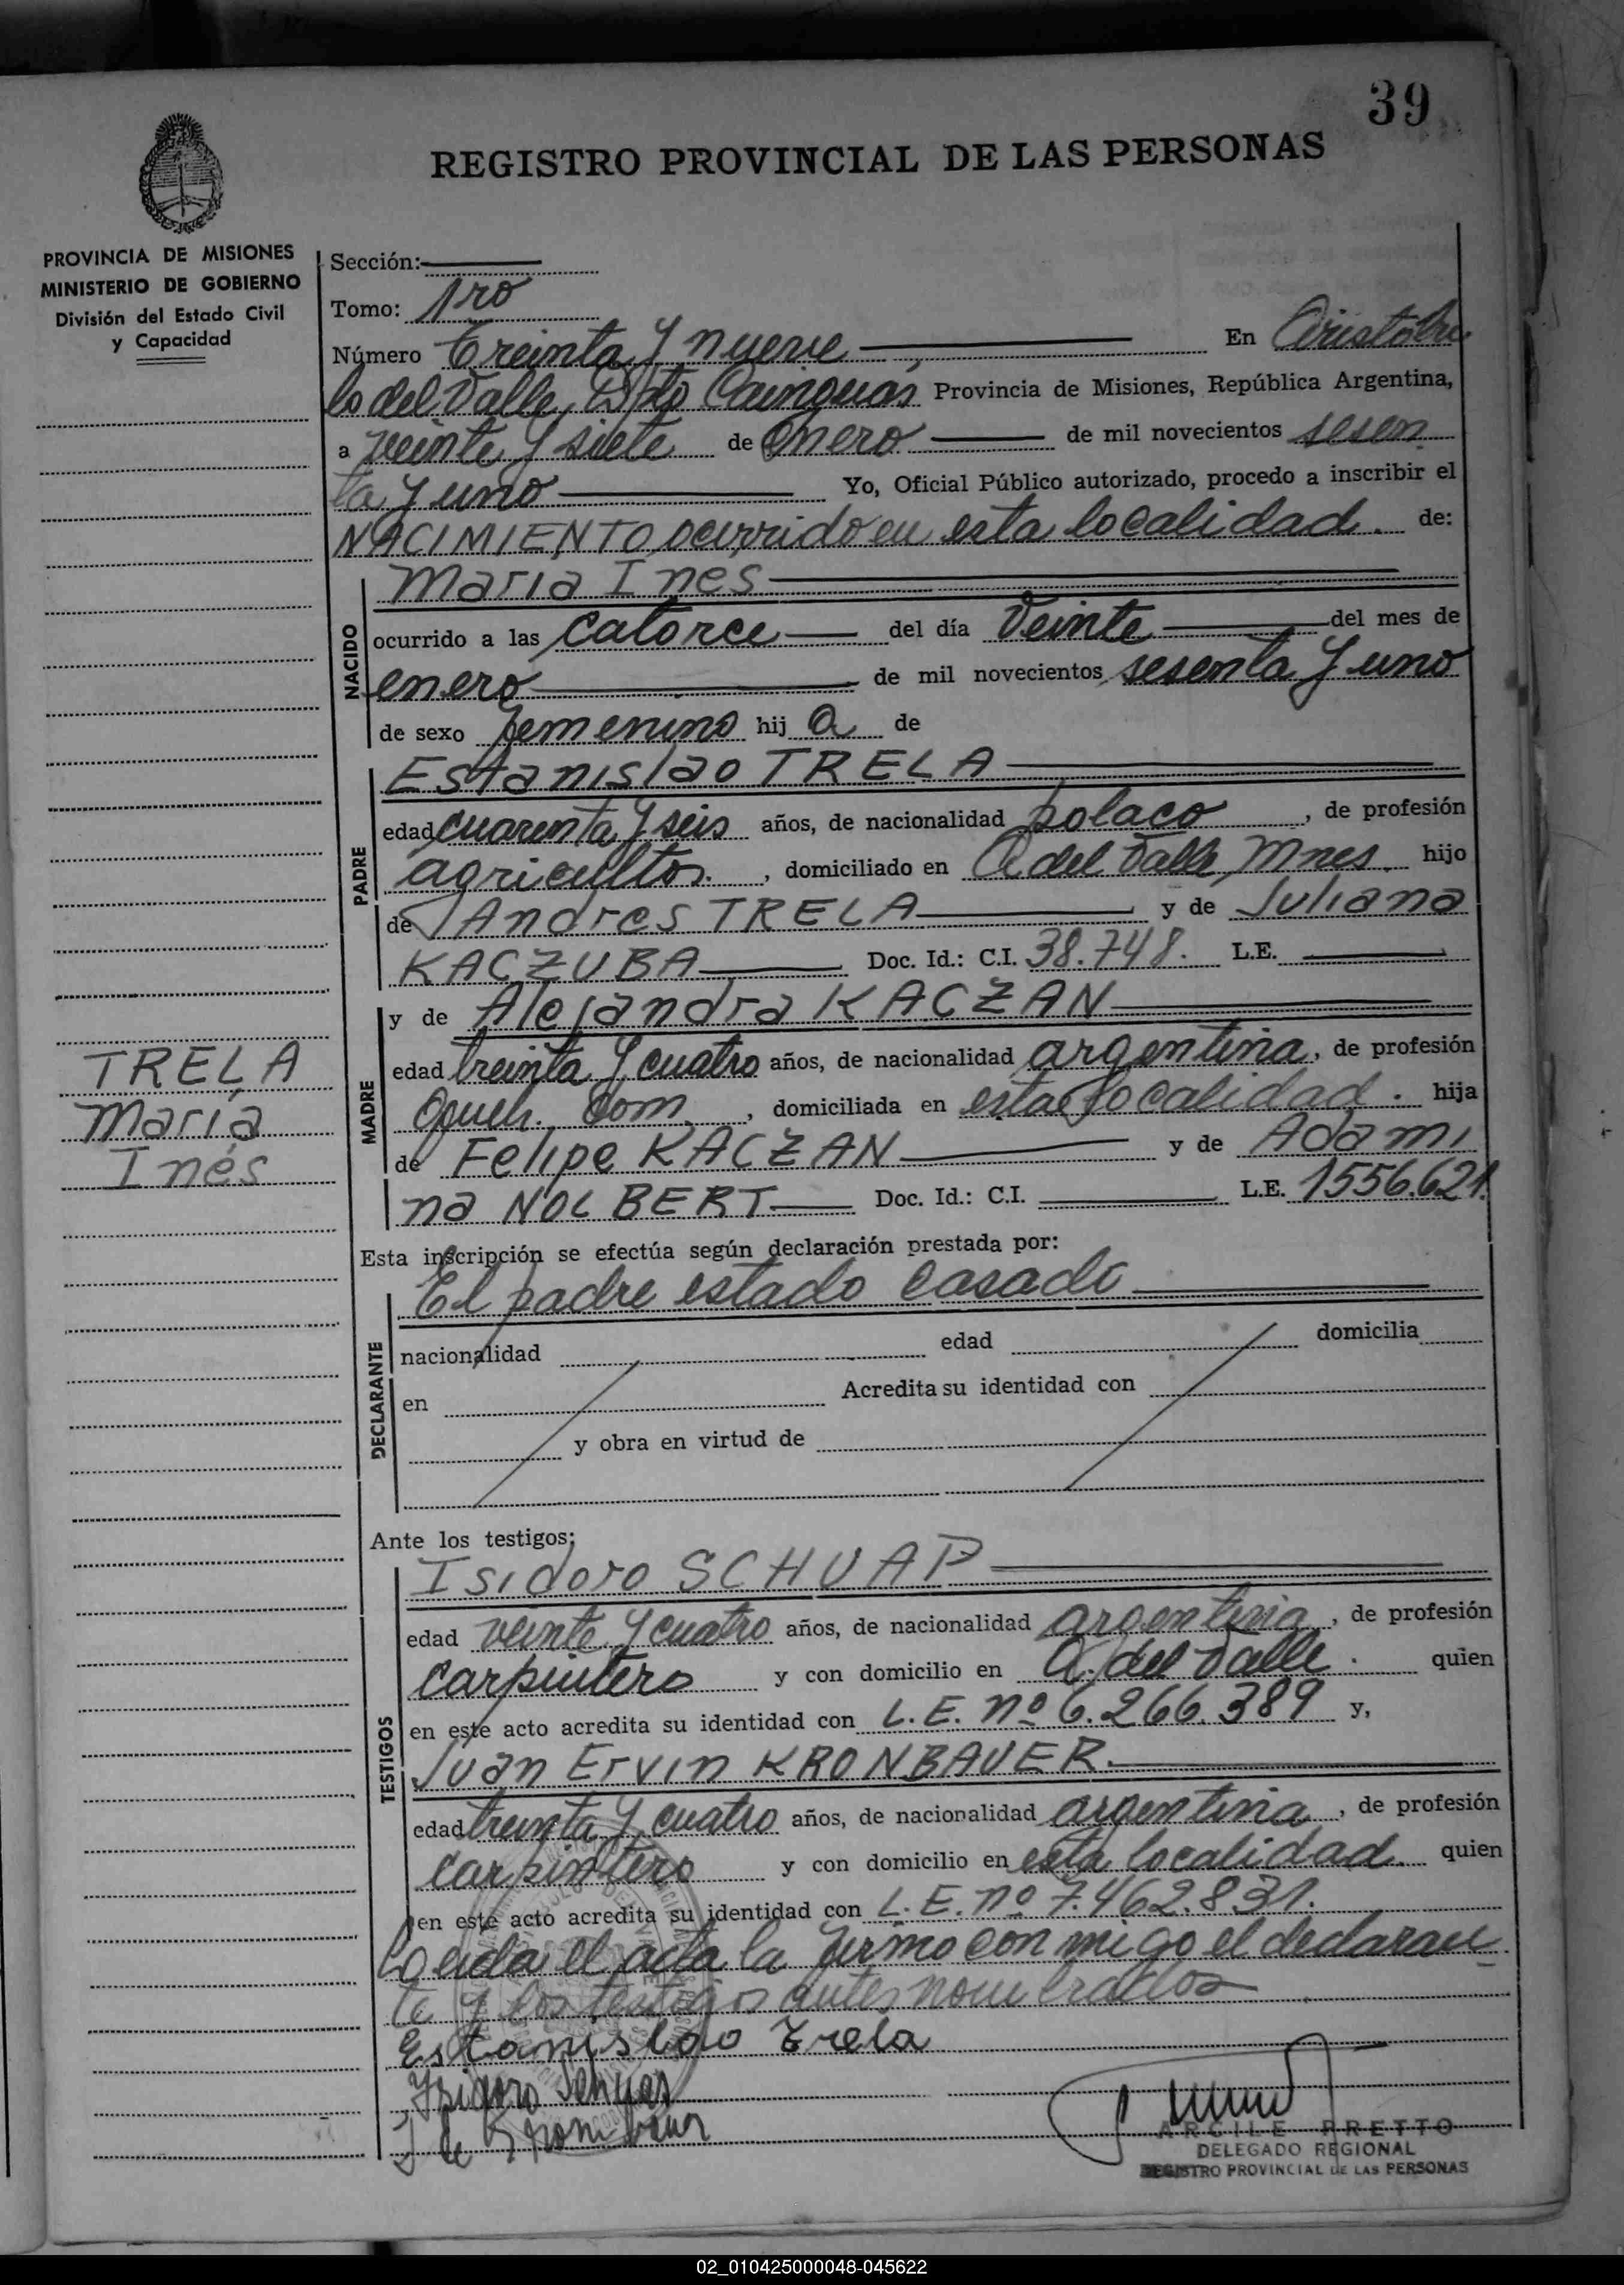 39
REGISTRO PROVINCIAL DE LAS PERSONAS
PROVINCIA DE MISIONES
MINISTERIO DE GOBIERNO
División del Estado Civil
y Capacidad
Sección:
Tomo: 1ro
Número Treinta y nueve En Aristóbu
lo del Valle, Dpto Cainguás Provincia de Misiones, República Argentina,
a veinte y siete de enero de mil novecientos sesen
ta y uno Yo, Oficial Público autorizado, procedo a inscribir el
NACIMIENTO ocurrido en esta localidad. de:
NACIDO
María Inés
ocurrido a las catorce del día veinte del mes de
enero de mil novecientos sesenta y uno
de sexo femenino hij a de
PADRE
Estanislao TRELA
edad cuarenta y seis años, de nacionalidad polaco, de profesión
agricultor., domiciliado en A del Valle, Mnes. hijo
de Andres TRELA y de Juliana
KACZUBA Doc. Id.: C.I. 38.748. L.E.
MADRE
y de Alejandra KACZAN
edad treinta y cuatro años, de nacionalidad argentina, de profesión
Queh. Dom., domiciliada en esta localidad. hija
de Felipe KACZAN y de Adami
na NOLBERT Doc. Id.: C.I. L.E. 1556.621.
TRELA
María
Inés
Esta inscripción se efectúa según declaración prestada por:
DECLARANTE
El padre estado casado
nacionalidad edad domicilia
en Acredita su identidad con
y obra en virtud de
Ante los testigos:
TESTIGOS
Isidoro SCHUAP
edad veinte y cuatro años, de nacionalidad argentina, de profesión
carpintero y con domicilio en A. del Valle. quien
en este acto acredita su identidad con L.E. nº 6.266.389 y,
Juan Ervin KRONBAUER.
edad treinta y cuatro años, de nacionalidad argentina, de profesión
carpintero y con domicilio en esta localidad. quien
en este acto acredita su identidad con L.E. nº 7.462.831.
Leida el acta la firmo con migo el declaran
te y los testigos antes nombrados
Estanislao Trela
Isidoro
ARCILE PRETTO
DELEGADO REGIONAL
REGISTRO PROVINCIAL DE LAS PERSONAS
02_010425000048-045622